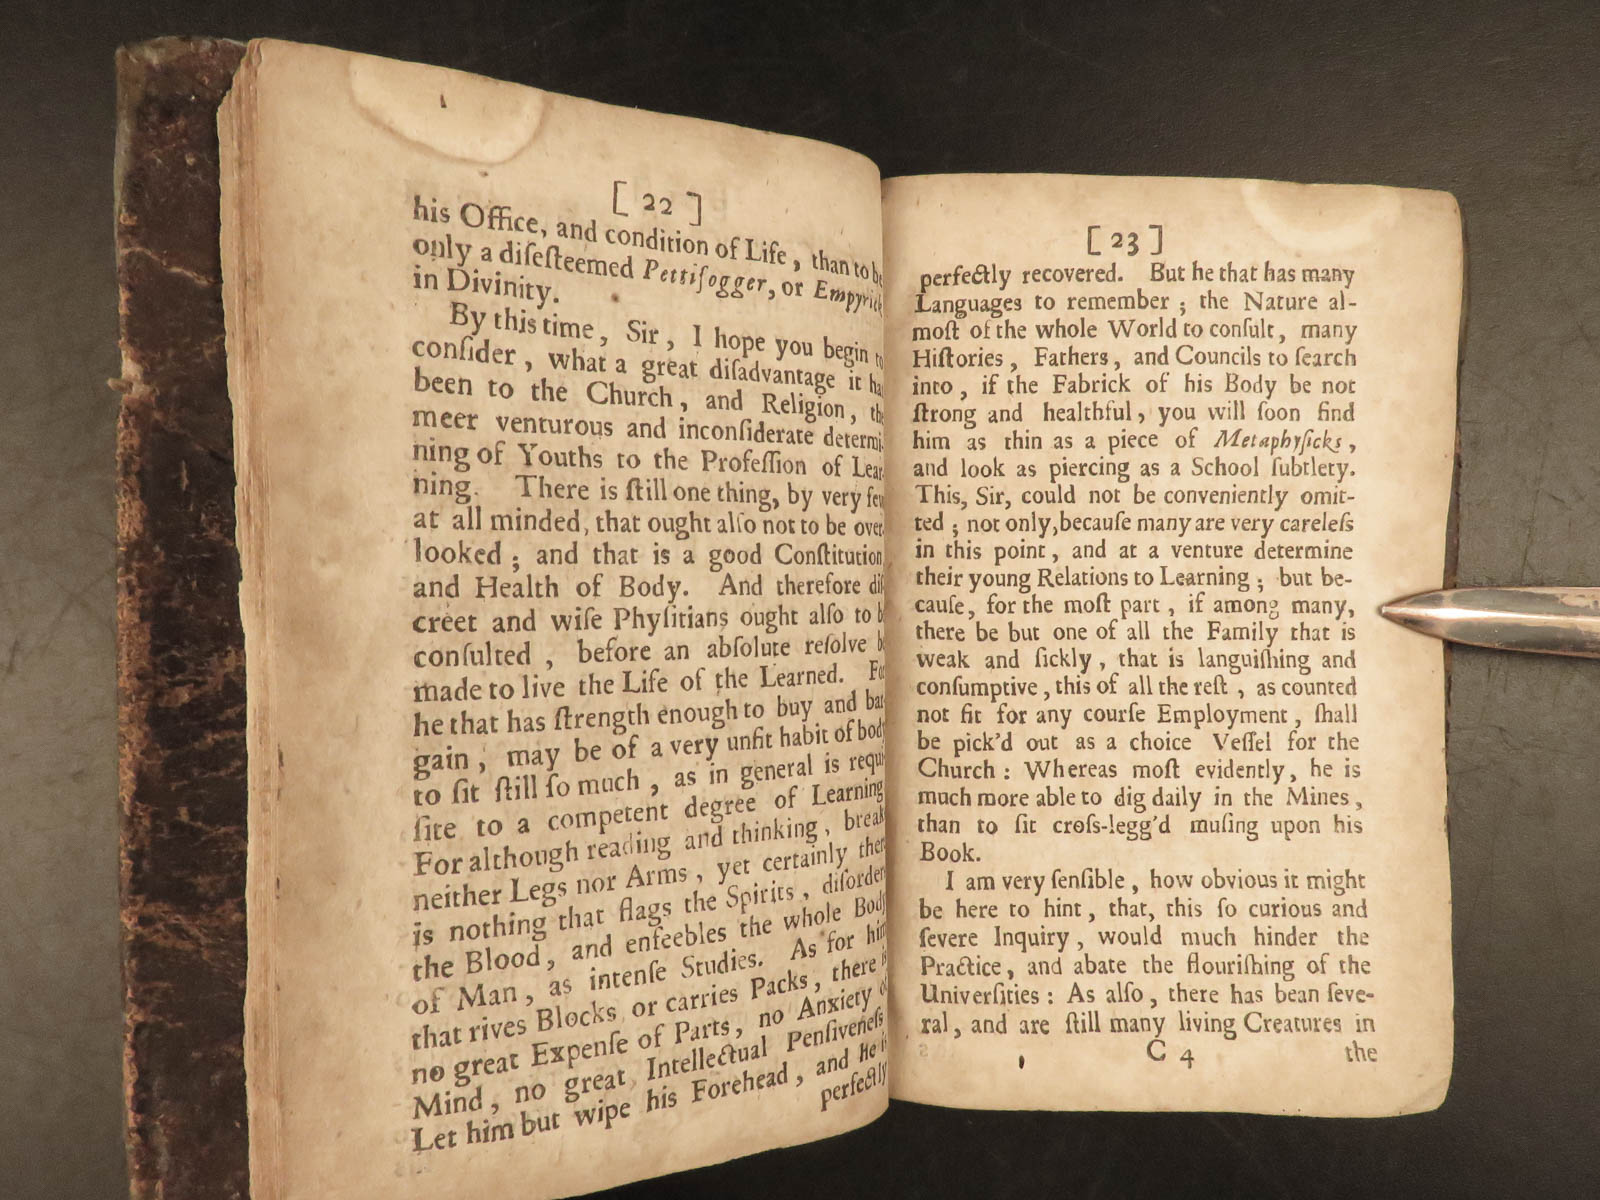 [ 22 ]
his Office, and condition of Life, than to be
only a diſeſteemed Pettifogger, or Empyrick
in Divinity.
By this time, Sir, I hope you begin to
conſider, what a great diſadvantage it has
been to the Church, and Religion, the
meer venturous and inconſiderate determi-
ning of Youths to the Profeſſion of Lear-
ning. There is ſtill one thing, by very few
at all minded, that ought alſo not to be over-
looked; and that is a good Conſtitution,
and Health of Body. And therefore diſ-
creet and wiſe Phyſitians ought alſo to be
conſulted, before an abſolute reſolve be
made to live the Life of the Learned. For
he that has ſtrength enough to buy and bar-
gain, may be of a very unfit habit of body
to ſit ſtill ſo much, as in general is requi-
ſite to a competent degree of Learning
For although reading and thinking, break
neither Legs nor Arms, yet certainly there
is nothing that flags the Spirits, diſorders
the Blood, and enfeebles the whole Body
of Man, as intenſe Studies. As for him
that rives Blocks or carries Packs, there is
no great Expenſe of Parts, no Anxiety of
Mind, no great Intellectual Penſiveneſs
Let him but wipe his Forehead, and He is
perfectly
[ 23 ]
perfectly recovered. But he that has many
Languages to remember; the Nature al-
moſt of the whole World to conſult, many
Hiſtories, Fathers, and Councils to ſearch
into, if the Fabrick of his Body be not
ſtrong and healthful, you will ſoon find
him as thin as a piece of Metaphyſicks,
and look as piercing as a School ſubtlety.
This, Sir, could not be conveniently omit-
ted; not only, becauſe many are very careleſs
in this point, and at a venture determine
their young Relations to Learning; but be-
cauſe, for the moſt part, if among many,
there be but one of all the Family that is
weak and ſickly, that is languiſhing and
conſumptive, this of all the reſt, as counted
not fit for any courſe Employment, ſhall
be pick'd out as a choice Veſſel for the
Church: Whereas moſt evidently, he is
much more able to dig daily in the Mines,
than to ſit croſs-legg'd muſing upon his
Book.
I am very ſenſible, how obvious it might
be here to hint, that, this ſo curious and
ſevere Inquiry, would much hinder the
Practice, and abate the flouriſhing of the
Univerſities: As alſo, there has bean ſeve-
ral, and are ſtill many living Creatures in
C 4 the